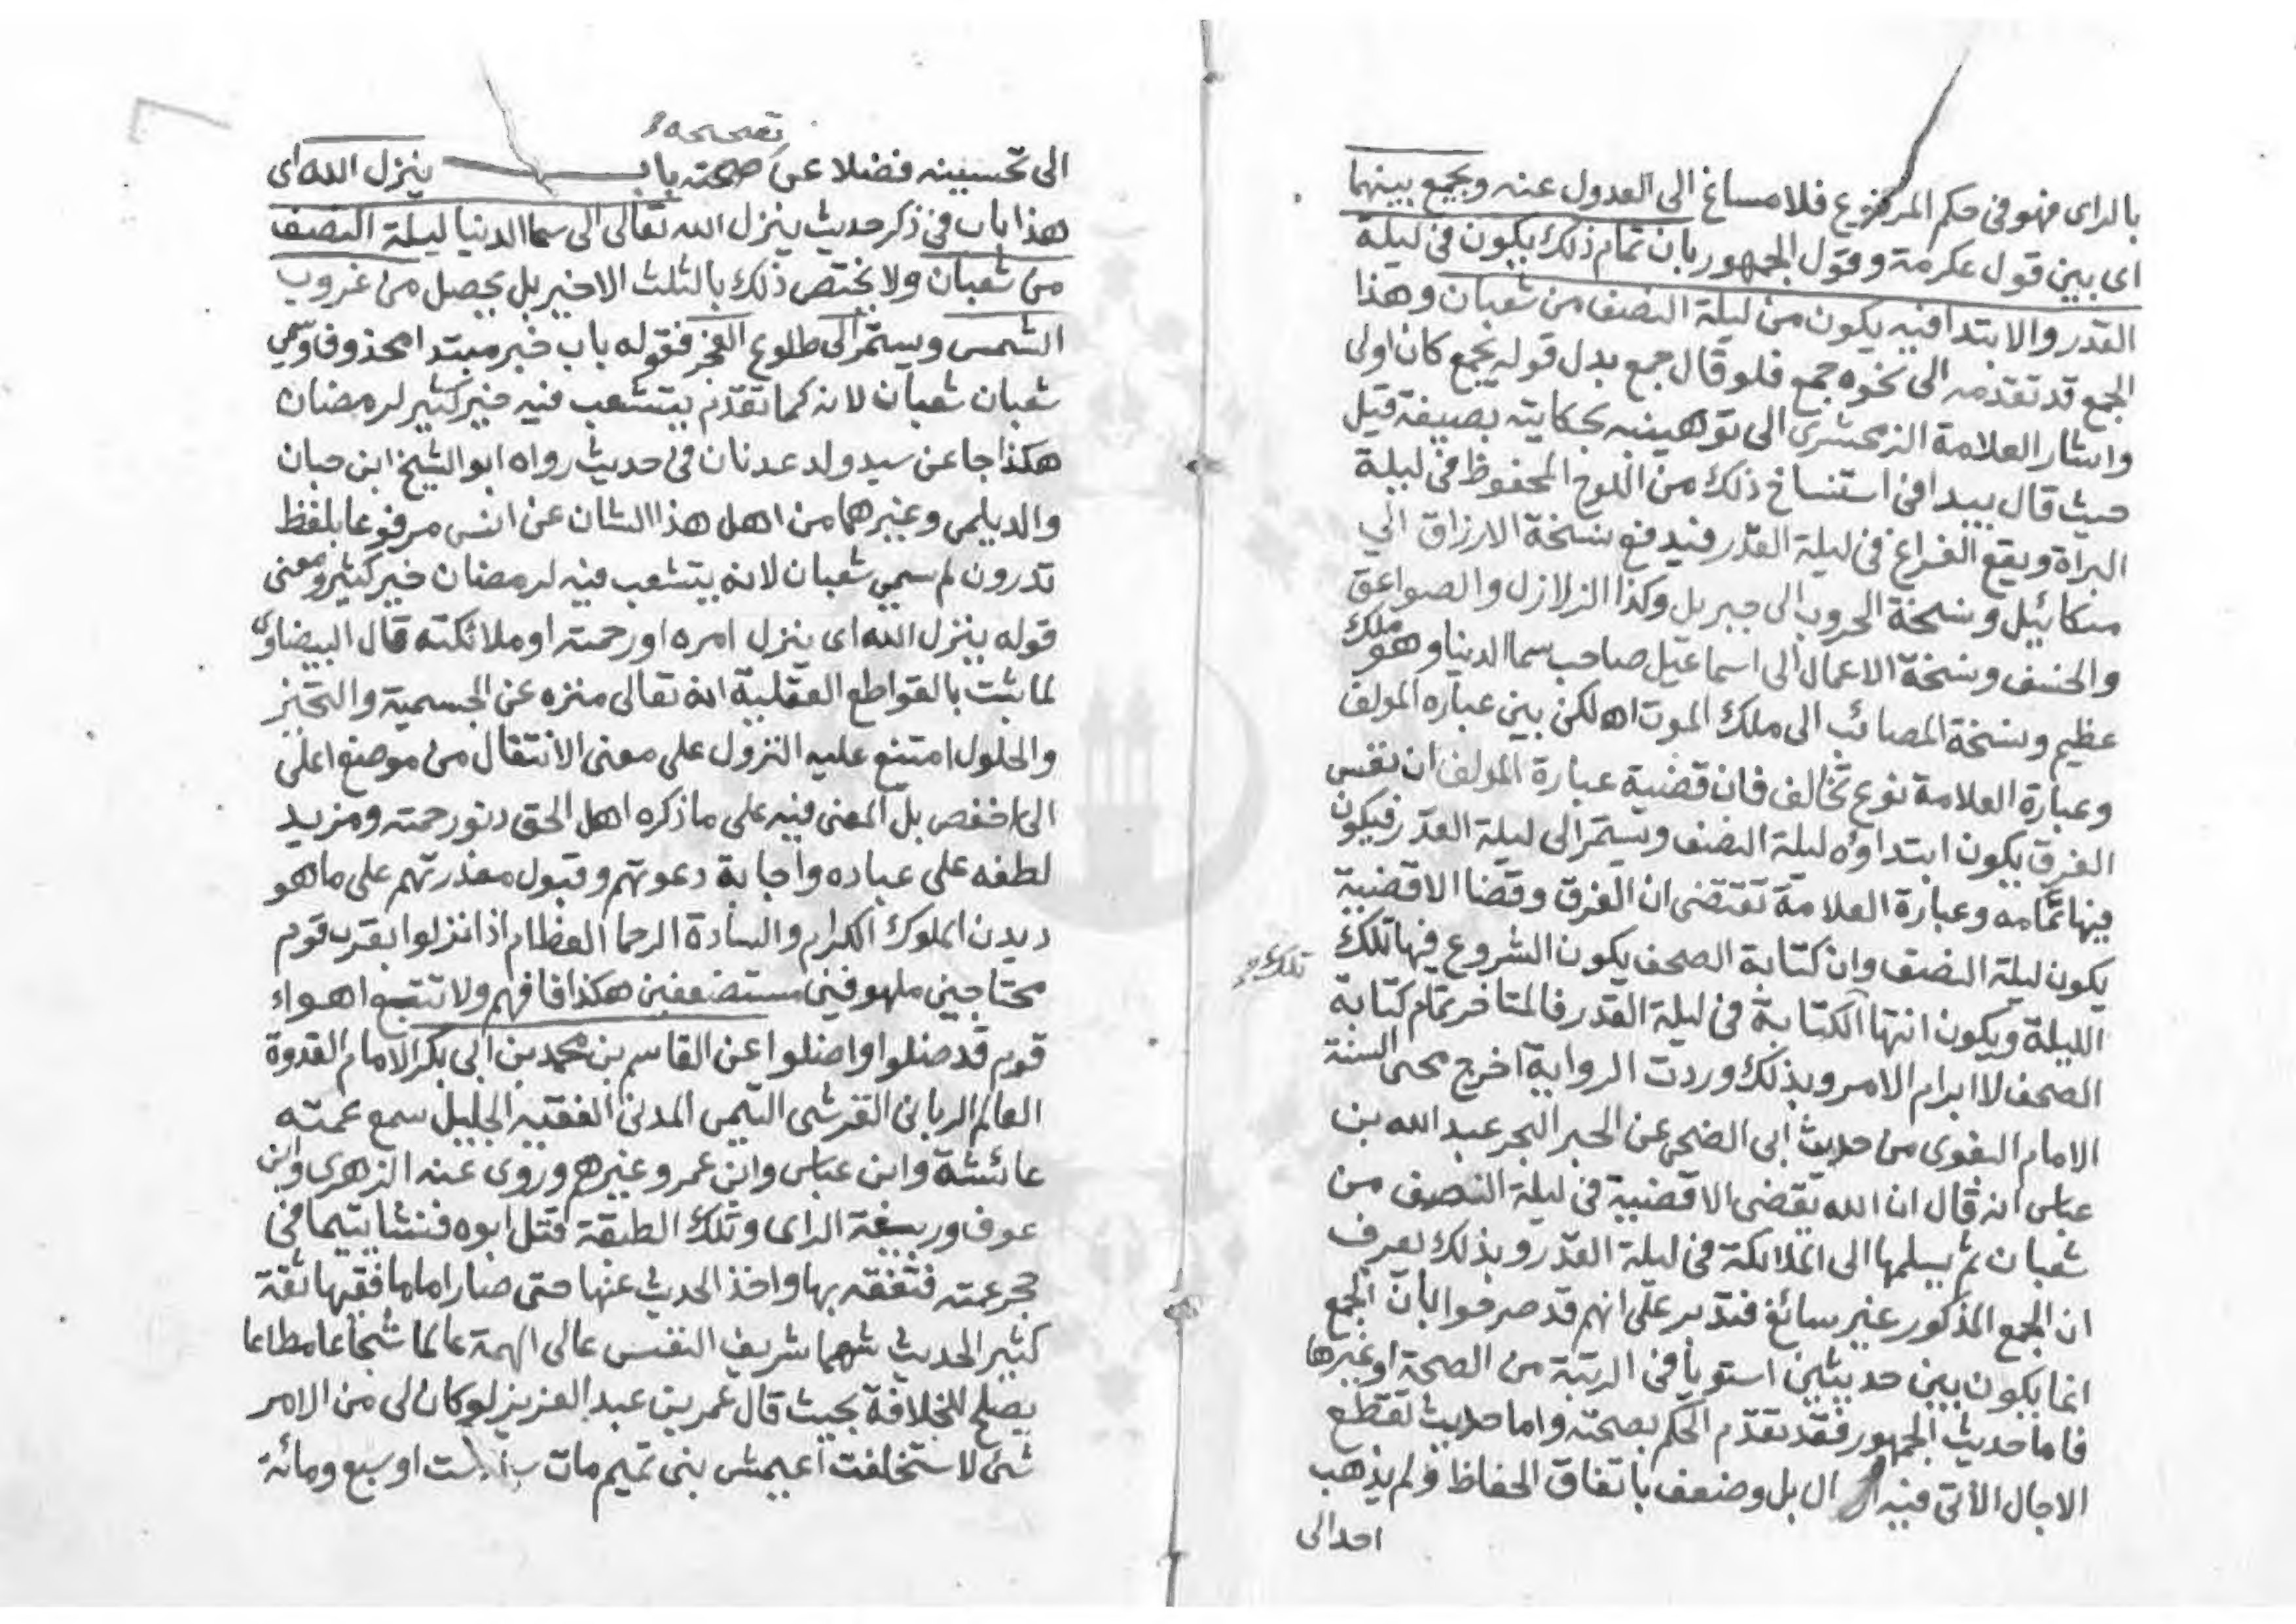 بالراى فهو فى حكم المرفوع فلا مساغ الى العدول عنه ويجمع بينهما
اى بين قول عكرمة وقول الجمهور بان تمام ذلك يكون فى ليلة
القدر والابتدا فيه يكون من ليلة النصف من شعبان وهذا
الجمع قد تقدمه الى نحوه جمع فلو قال جمع بدل قوله يجمع كان اولى
واشار العلامة الزمحشرى الى توهينه بحكايته بصيغة قيل
حيث قال يبدا فى استنساخ ذلك من اللوح المحفوظ فى ليلة
البراة ويقع الفراغ فى ليلة القدر فيدفع نسخة الارزاق الي
ميكائيل ونسخة الحروب الى جبريل وكذا الزلازل والصواعق
والخسف ونسخة الاعمال الى اسماعيل صاحب سما الدنيا وهو ملك
عظيم ونسخة المصائب الى ملك الموت اه لكن بين عباره المولف
وعبارة العلامة نوع تخالف فان قضية عبارة المولف ان نفس
الفرق يكون ابتداوه ليلة النصف ويستمر الى ليلة القدر فيكون
فيها تمامه وعبارة العلامة تقتضى ان الفرق وقضا الاقضية
يكون ليلة النصف وان كتابة الصحف يكون الشروع فيها تلك
تلك
الليلة ويكون انتها الكتابة فى ليلة القدر فالمتاخر تمام كتابة
الصحف لا ابرام الامر وبذلك وردت الرواية اخرج محى السنة
الامام البغوى من حديث ابى الضحى عن الحبر البحر عبد الله بن
عباس انه قال ان الله يقضى الاقضية فى ليلة النصف من
شعبان ثم يسلمها الى الملائكة فى ليلة القدر وبذلك يعرف
ان الجمع المذكور غير سائغ فتدبر على انهم قد صرحوا بان الجمع
انما يكون بين حديثين استويا فى الرتبة من الصحة او غيرها
فاما حديث الجمهور فقد تقدم الحكم بصحته واما حديث تقطع
الاجال الآتى فيه ال بل وضعف باتفاق الحفاظ ولم يذهب
احد الى
تصحيحه
الى تحسينه فضلا عن صحته باب ينزل الله اى
هذا باب فى ذكر حديث ينزل الله تعالى الى سما الدنيا ليلة النصف
من شعبان ولا يختص ذلك بالثلث الاخير بل يحصل من غروب
الشمس ويستمر الى طلوع الفجر فقوله باب خبر مبتدا محذوف وسمي
شعبان شعبان لانه كما تقدم يتشعب فيه خير كثير لرمضان
هكذا جا عن سيد ولد عدنان فى حديث رواه ابو الشيخ ابن حبان
والديلمى وغيرهما من اهل هذا الشان عن انس مرفوعا بلفظ
تدرون لم سمي شعبان لانه يتشعب فيه لرمضان خير كثير ومعنى
قوله ينزل الله اى ينزل امره او رحمته او ملائكته قال البيضاوى
لما ثبت بالقواطع العقلية انه تعالى منزه عن الجسمية والتحيز
والحلول امتنع عليه النزول على معنى الانتقال من موضع اعلى
الى اخفض بل المعنى فيه على ما ذكره اهل الحق دنو رحمته ومزيد
لطفه على عباده واجابة دعوتهم وقبول معذرتهم على ما هو
ديدن الملوك الكرام والسادة الرحما العظام اذا نزلوا بقرب قوم
محتاجين ملهوفين مستضعفين هكذا فافهم ولا تتبع اهواء
قوم قد ضلوا واضلوا عن القاسم بن محمد بن ابى بكر الامام القدوة
العالم الربانى القرشى التيمى المدنى الفقيه الجليل سمع عمته
عائشة وابن عباس وابن عمر وغيرهم وروى عنه الزهرى وابن
عوف وربيعة الراى وتلك الطبقة قتل ابوه فنشا يتيما فى
حجر عمته فتفقه بها واخذ الحديث عنها حتى صار اماما فقيها ثقة
كثير الحديث شهما شريف النفس عالى الهمة عالما شجاعا مطاعا
يصلح للخلافة بحيث قال عمر بن عبد العزيز لو كان لى من الامر
شئ لاستخلفت اعيمش بنى تميم مات ست او سبع ومائة